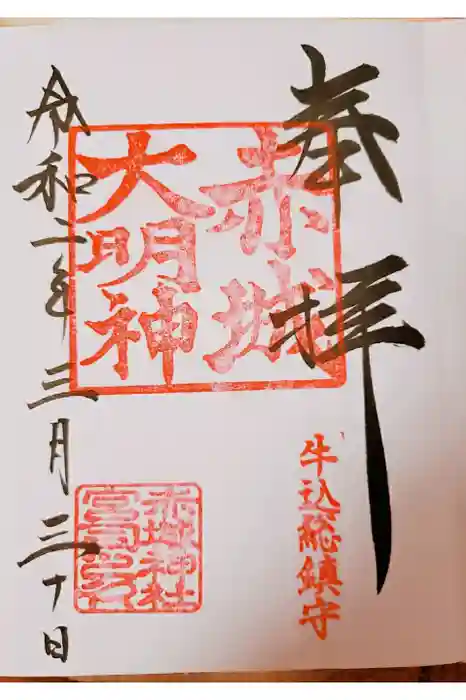 奉拝
赤城
大明神
牛込総鎮守
赤城神社
宮司之印
令和二年三月三十日